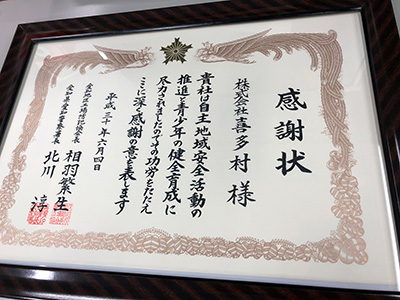 感謝状
株式会社喜多村 様
貴社は自主地域安全活動の
推進と青少年の健全育成に
尽力されましたのでその功労をたたえ
ここに深く感謝の意を表します
平成三十年六月四日
相羽繁生
北川 淳